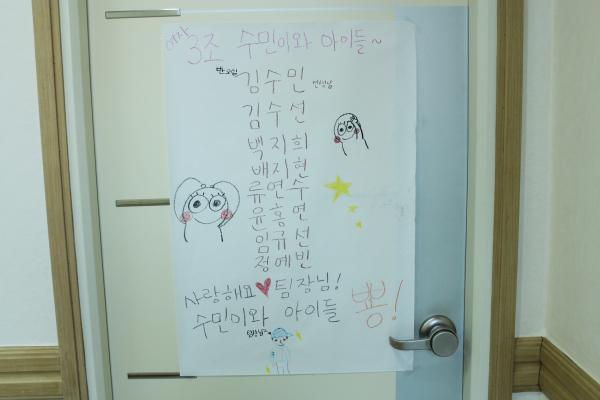 여자 3조 수민이와 아이들~
김수민 선생님
김수선
백지희
배지현
류연수
윤홍연
임규선
정예빈
사랑해요♥팀장님!
수민이와 아이들 뿅!
팀장님